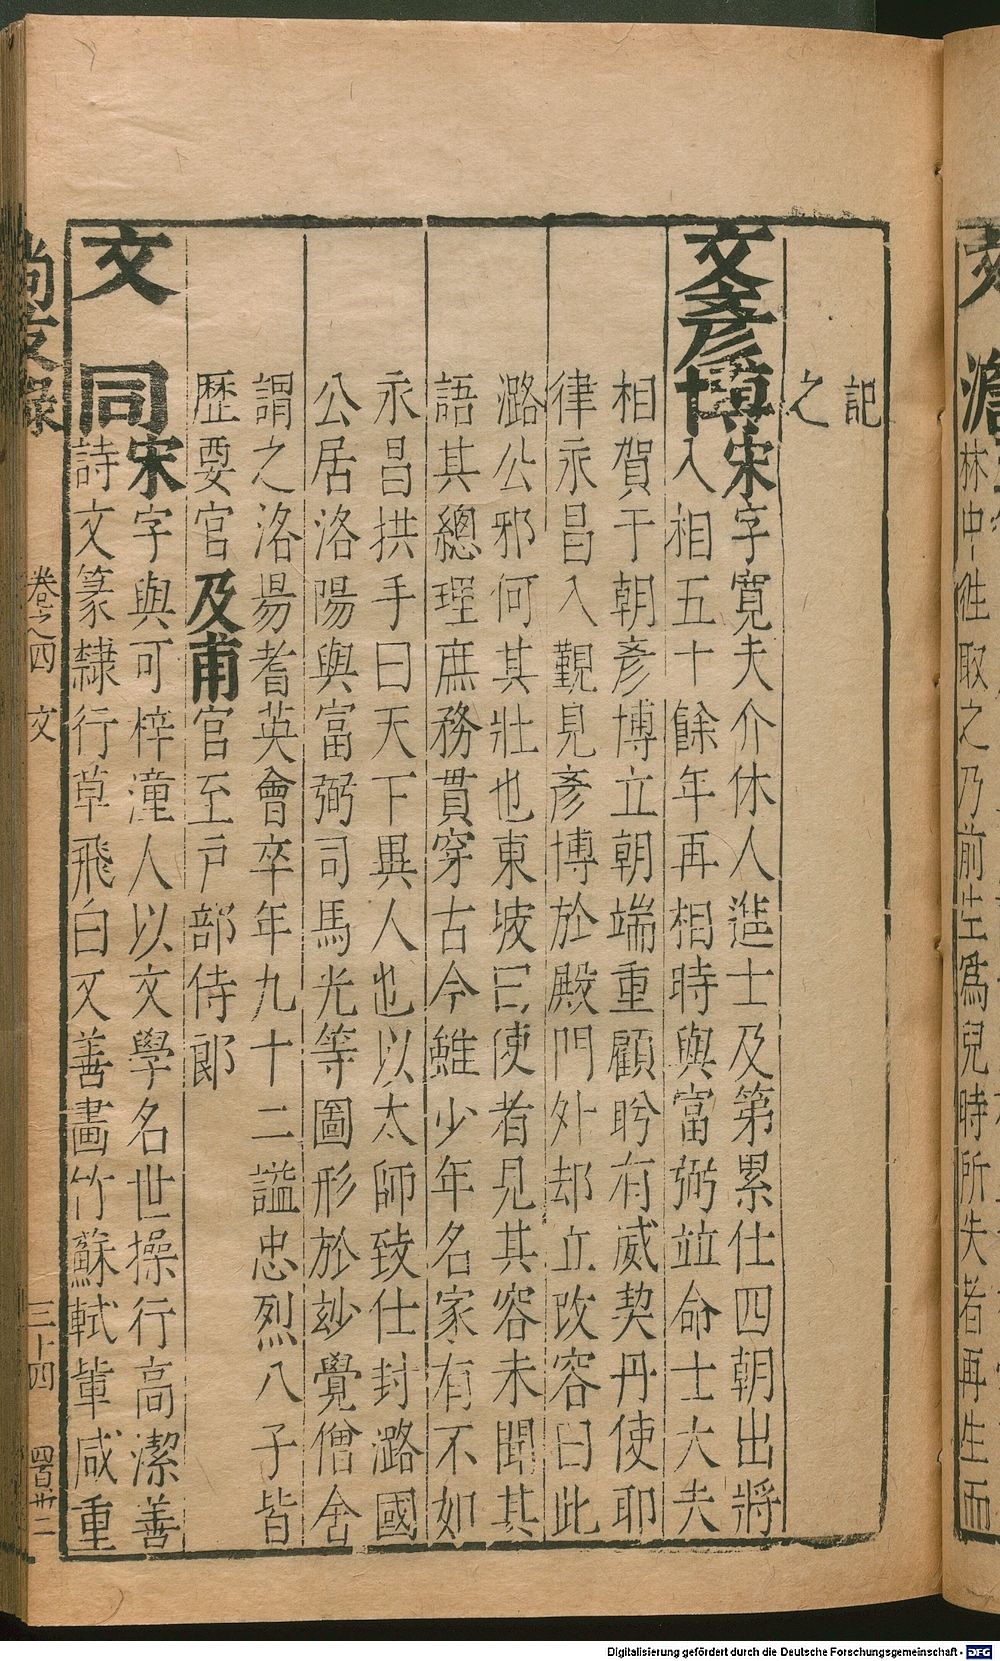 記
之
文彥博宋字寬夫介休人進士及第累仕四朝出將
入相五十餘年再相時與富弼並命士大夫
相賀于朝彥博立朝端重顧盻有威契丹使耶
律永昌入覲見彥博於殿門外却立改容曰此
潞公邪何其壯也東坡曰使者見其容未聞其
語其總理庶務貫穿古今雖少年名家有不如
永昌拱手曰天下異人也以太師致仕封潞國
公居洛陽與富弼司馬光等圖形於玅覺僧舍
謂之洛昜耆英會卒年九十二謚忠烈八子皆
歷要官及甫官至戶部侍郎
文同宋字與可梓潼人以文學名世操行高潔善
詩文篆隸行草飛白又善畫竹蘇軾輩咸重
尚友錄 卷之四 文 三十四 四百卅二
林中徃取之乃前生爲兒時所失者再生而
Digitalisierung gefördert durch die Deutsche Forschungsgemeinschaft - DFG